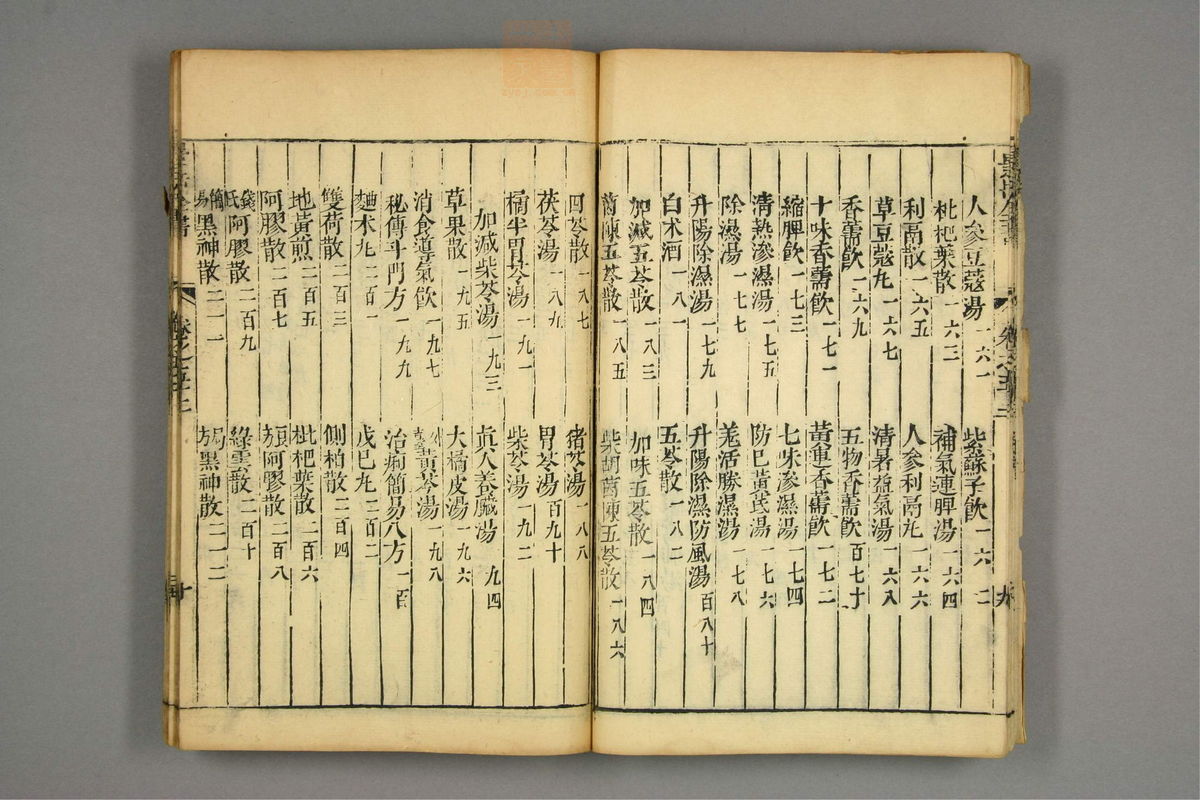 人參豆蔻湯一六一
紫蘇子飲一六二
枇杷葉散一六三
補氣運脾湯一六四
利膈散一六五
人參利膈丸一六六
草豆蔻丸一六七
清暑益氣湯一六八
香薷飲一六九
五物香薷飲百七十
十味香薷飲一七一
黃連香薷飲一七二
縮脾飲一七三
七味滲濕湯一七四
清熱滲濕湯一七五
防巳黃芪湯一七六
除濕湯一七七
羌活勝濕湯一七八
升陽除濕湯一七九
升陽除濕防風湯百八十
白术酒一八一
五苓散一八二
加減五苓散一八三
加味五苓散一八四
茵陳五苓散一八五
柴胡茵陳五苓散一八六
四苓散一八七
猪苓湯一八八
茯苓湯一八九
胃苓湯百九十
橘半胃苓湯一九一
柴苓湯一九二
加減柴苓湯一九三
眞人養臟湯一九四
草果散一九五
大橘皮湯一九六
消食導氣飲一九七
黃芩湯一九八
秘傳斗門方一九九
治痢簡易八方二百
麯术丸二百一
戊巳丸二百二
雙荷散二百三
側柏散二百四
地黃煎二百五
枇杷葉散二百六
阿膠散二百七
阿膠散二百八
錢氏阿膠散二百九
綠雲散二百十
簡易黑神散二一一
黑神散二一二
卷之五十二
九
十